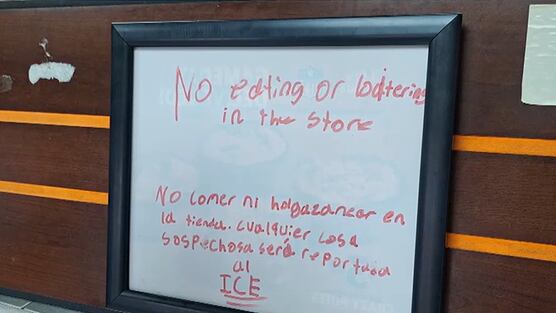 No eating or loitering
in the store
No comer ni holgazanear en
la tienda. cualquier cosa
sospechosa será reportada
al
ICE